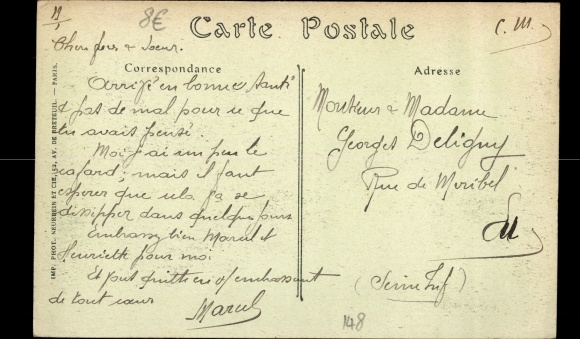 8€
Carte Postale
C. M.
Cher frère & soeur.
Correspondance
Arrivé en bonne santé
& pas de mal pour ce que
tu avais pensé.
Moi j'ai un peu le
cafard; mais il faut
esperer que cela va se
dissipper dans quelques jours
Embrassez bien Marcel et
Henriette pour moi
Et tout
embrassant
de tout coeur
Marcel
Adresse
Monsieur & Madame
Georges Deligny
Rue de
(Seine Inf)
148
IMP. PHOT. NEURDEIN ET CIE, 52, AV. DE BRETEUIL. — PARIS.